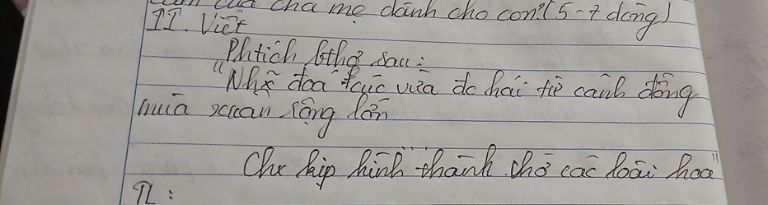 cảm của cha mẹ dành cho con? (5-7 dòng)
II. Viết
Phtích bthơ sau:
"Những đoá cúc vừa đc hái từ cánh đồng
mùa xuan rộng lớn
Chư kịp hình thành chỗ các loài hoa"